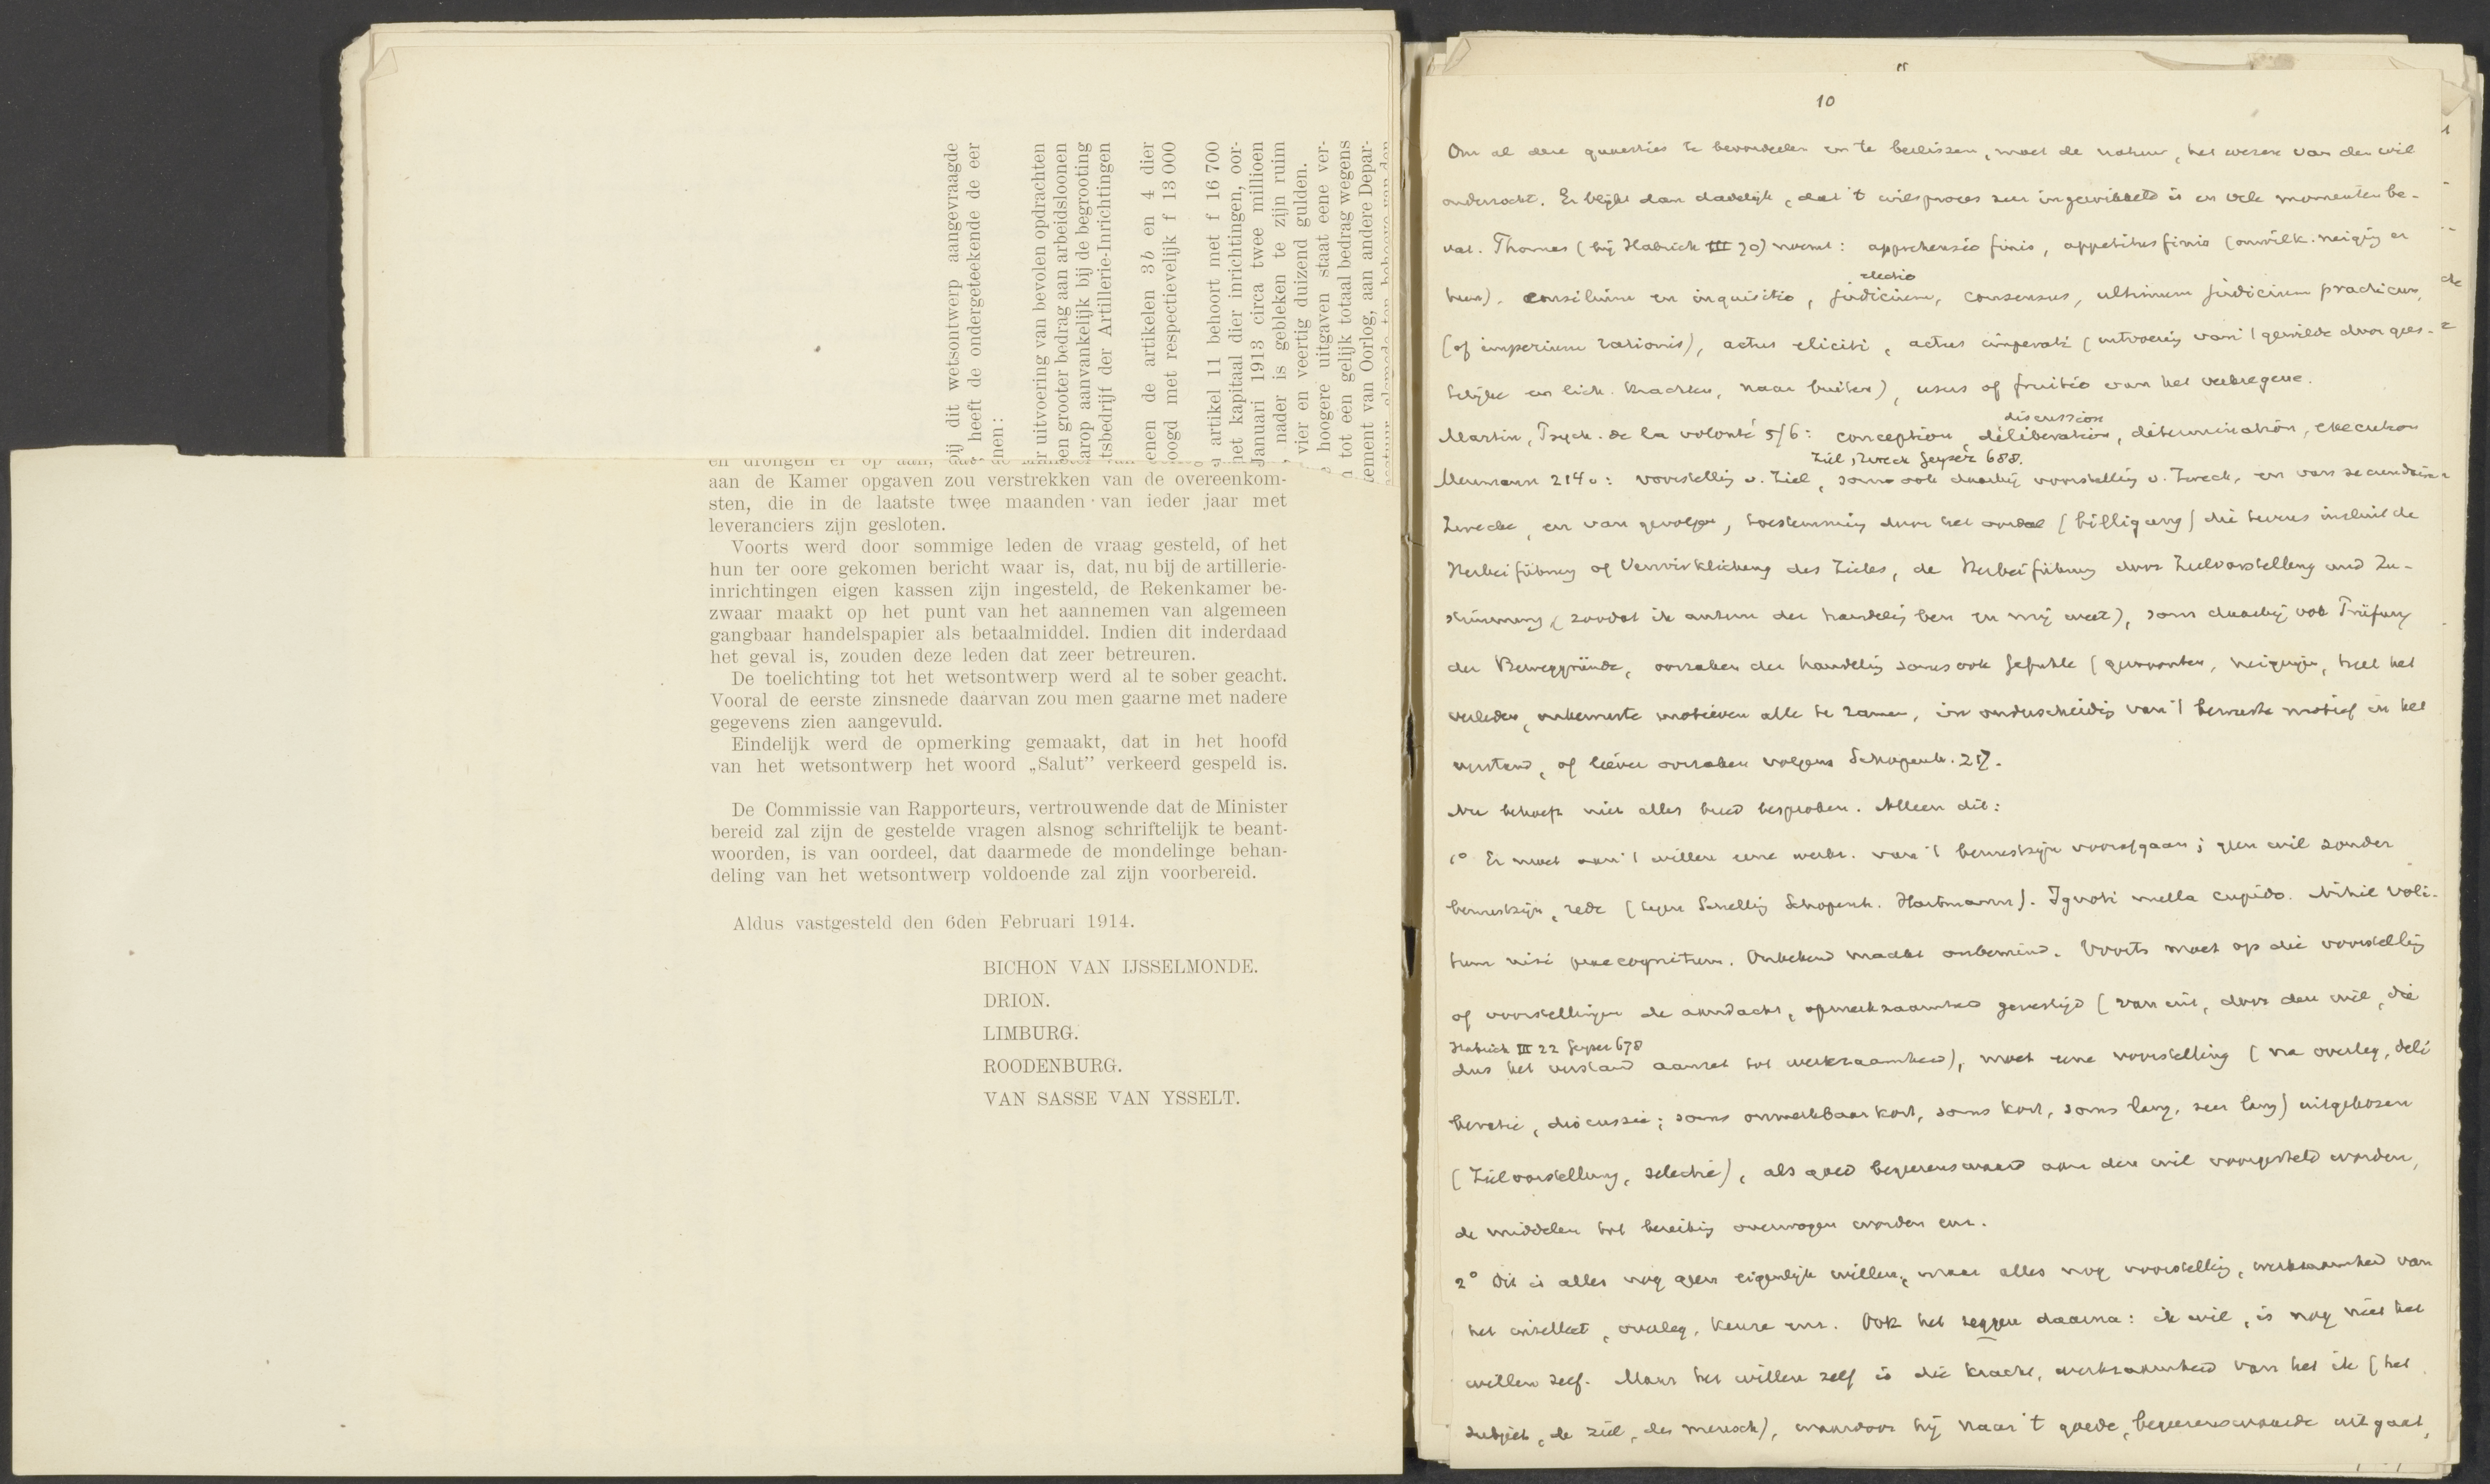 bij dit wetsontwerp aangevraagde
heeft de ondergeteekende de eer
nen:
r uitvoering van bevolen opdrachten
en grooter bedrag aan arbeidsloonen
arop aanvankelijk bij de begrooting
tsbedrijf der Artillerie-Inrichtingen
enen de artikelen 3b en 4 dier
oogd met respectievelijk f 13 000
artikel 11 behoort met f 16 700
het kapitaal dier inrichtingen, oor-
Januari 1913 circa twee millioen
nader is gebleken te zijn ruim
vier en veertig duizend gulden.
hoogere uitgaven staat eene ver-
tot een gelijk totaal bedrag wegens
ement van Oorlog, aan andere Depar-
en drongen er op aan, dat de Minister van
aan de Kamer opgaven zou verstrekken van de overeenkom-
sten, die in de laatste twee maanden van ieder jaar met
leveranciers zijn gesloten.
Voorts werd door sommige leden de vraag gesteld, of het
hun ter oore gekomen bericht waar is, dat, nu bij de artillerie-
inrichtingen eigen kassen zijn ingesteld, de Rekenkamer be-
zwaar maakt op het punt van het aannemen van algemeen
gangbaar handelspapier als betaalmiddel. Indien dit inderdaad
het geval is, zouden deze leden dat zeer betreuren.
De toelichting tot het wetsontwerp werd al te sober geacht.
Vooral de eerste zinsnede daarvan zou men gaarne met nadere
gegevens zien aangevuld.
Eindelijk werd de opmerking gemaakt, dat in het hoofd
van het wetsontwerp het woord „Salut” verkeerd gespeld is.
De Commissie van Rapporteurs, vertrouwende dat de Minister
bereid zal zijn de gestelde vragen alsnog schriftelijk te beant-
woorden, is van oordeel, dat daarmede de mondelinge behan-
deling van het wetsontwerp voldoende zal zijn voorbereid.
Aldus vastgesteld den 6den Februari 1914.
BICHON VAN IJSSELMONDE.
DRION.
LIMBURG.
ROODENBURG.
VAN SASSE VAN YSSELT.
10
Om al deze quaesties te beoordeelen en te beslissen, moet de natuur, het wezen van den wil
onderzocht. Er blijkt dan dadelijk, dat 't wilsproces zeer ingewikkeld is en vele momenten be-
vat. Thomas (bij Habrich III 20) noemt: apprehensio finis, appetitus finis (onwilk. neiging er
heen), consilium en inquisitio, judicium, electio consensus, ultimum judicium practicum,
(of imperium rationis), actus eliciti, actus imperati (uitvoering van 't gewilde door gees-
telijke en lich. krachten, naar buiten), usus of fruitio van het verkregene.
discussion
Martin, Psych. de la volonté 5/6: conception, délibération, détermination, execution
Ziel, Zweck Geyser 688.
Meumann 214v: voorstelling v. Ziel, soms ook daarbij voorstelling v. Zweck, en van secundaire
Zwecke, en van gevolgen, toestemming door het oordeel (billigung) die tevens insluit de
Herbeiführung of Verwirklichung des Zieles, de Herbeiführung durch Zielvorstellung und Zu-
stimmung (zoodat ik auteur der handeling ben en mij weet), soms daarbij ook Prüfung
der Beweggründe, oorzaken der handeling soms ook Gefühle (gewoonten, neigingen, heel het
verleden, onbewuste motieven alle te zamen, in onderscheiding van 't bewuste motief in het
verstand, of liever oorzaken volgens Schopenh. 217.
Nu behoeft niet alles breed besproken. Alleen dit:
1° Er moet aan 't willen eene werkz. van 't bewustzijn voorafgaan; geen wil zonder
bewustzijn, rede (tegen Schelling Schopenh. Hartmann). Ignoti nulla cupido. Nihil voli-
tum nisi praecognitum. Onbekend maakt onbemind. Voorts moet op die voorstelling
of voorstellingen de aandacht, opmerkzaamheid gevestigd (van uit, door den wil, die
Habrich III 22 Geyser 678
dus het verstand aanzet tot werkzaamheid), moet eene voorstelling (na overleg, deli
beratie, discussie; soms onmerkbaar kort, soms kort, soms lang, zeer lang) uitgekozen
(Zielvorstellung, selectie), als goed begeerenswaard aan den wil voorgesteld worden,
de middelen tot bereiking overwogen worden enz.
2° Dit is alles nog geen eigenlijk willen, maar alles nog voorstelling, werkzaamheid van
het intellect, overleg, keuze enz. Ook het zeggen daarna: ik wil, is nog niet het
willen zelf. Maar het willen zelf is die kracht, werkzaamheid van het ik (het
subject, de ziel, der mensch), waardoor hij naar 't goede, begeerenswaarde uitgaat,